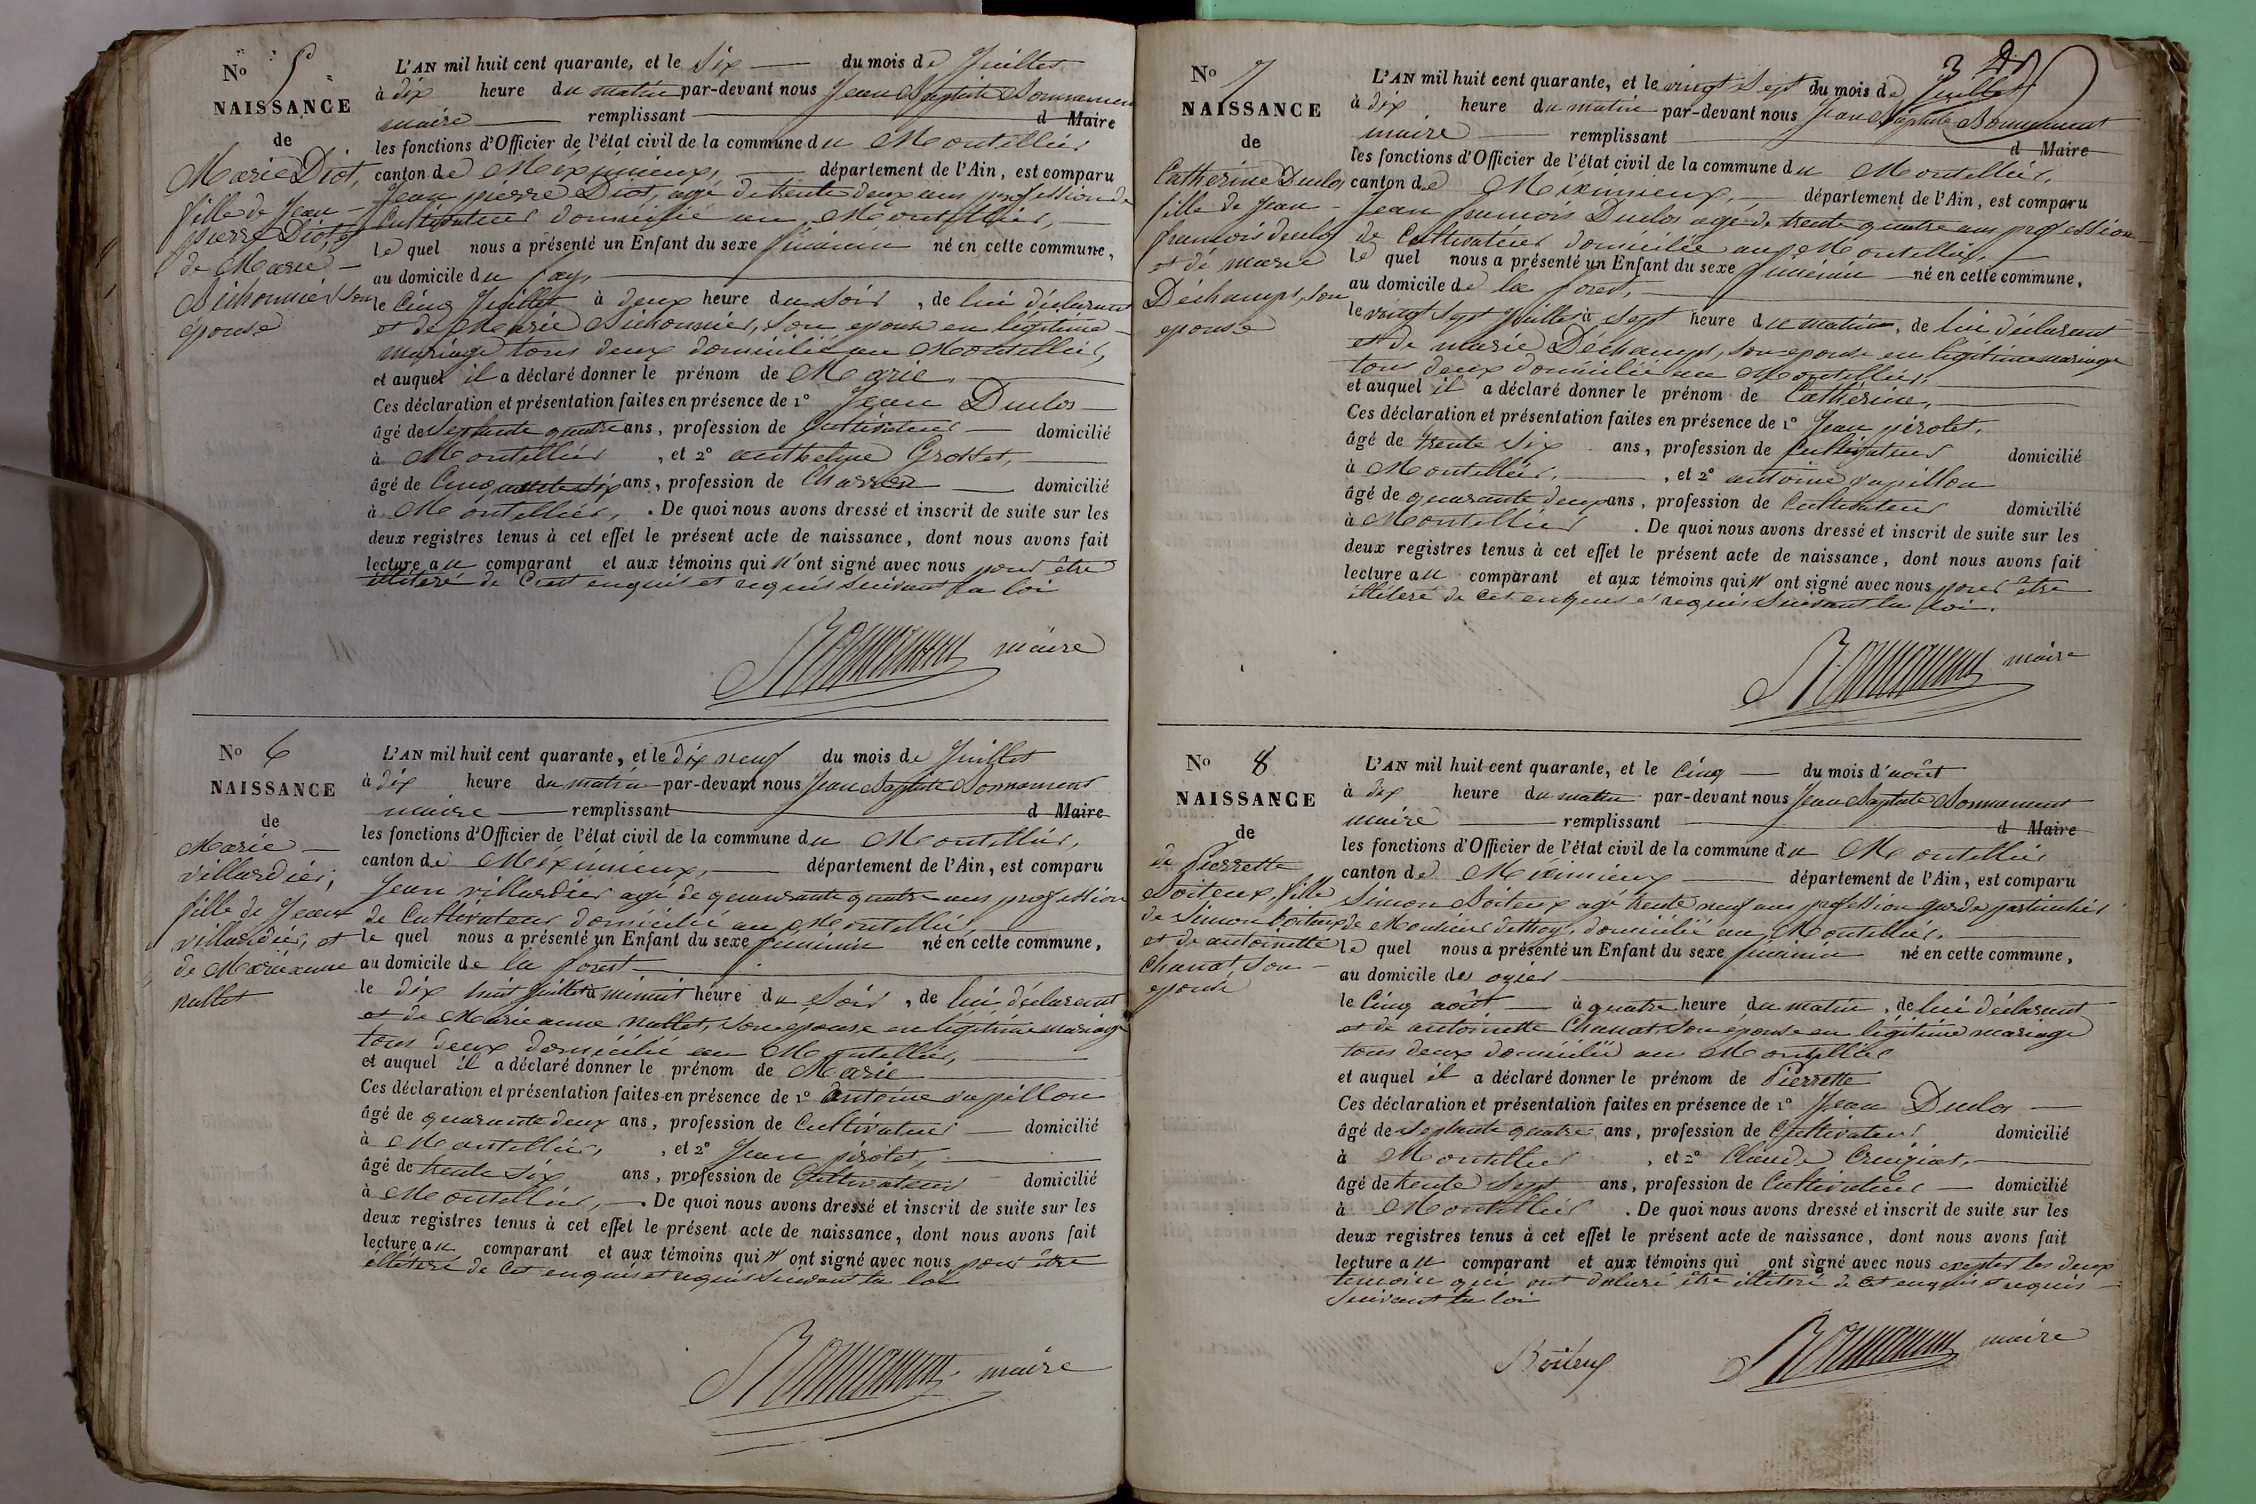 N° 5
NAISSANCE
de
Marie Diot,
fille de Jean
pierre Diot, et
de Marie
son
épouse
L'AN mil huit cent quarante, et le Six du mois de Juillet
à dix heure du matin par-devant nous Jean Baptiste Bonnamen
maire remplissant d Maire
les fonctions d'Officier de l'état civil de la commune du Montellier
canton de Méximieux, département de l'Ain, est comparu
Jean pierre Diot, agé de trente deux ans profession de
Cultivateur domicilié au Montellier,
le quel nous a présenté un Enfant du sexe féminin né en cette commune,
au domicile du
le Cinq Juillet à deux heure du Soir, de lui déclarant
et de Marie son epouse en légitime
mariage tous deux domicilié au Montellier,
et auquel il a déclaré donner le prénom de Marie
Ces déclaration et présentation faites en présence de 1° Jean Duclos
âgé de Septante quatre ans, profession de Cultivateur domicilié
à Montellier, et 2° anthelme Grosset,
âgé de Cinquante six ans, profession de Charron domicilié
à Montellier, . De quoi nous avons dressé et inscrit de suite sur les
deux registres tenus à cet effet le présent acte de naissance, dont nous avons fait
lecture au comparant et aux témoins qui n'ont signé avec nous pour être
illiteré de C'est enquis et requis Suivant la loi
Bonnamen maire
N° 6
NAISSANCE
de
Marie
villardier,
fille de Jean
villardier, et
de Marieanne
Nallet
L'AN mil huit cent quarante, et le dix neuf du mois de Juillet
à dix heure du matin par-devant nous Jean Baptiste Bonnament
maire remplissant d Maire
les fonctions d'Officier de l'état civil de la commune du Montellier,
canton de Méximieux, département de l'Ain, est comparu
Jean villardier agé de quarante quatre ans profession
de Cultivateur domicilié au Montellier,
le quel nous a présenté un Enfant du sexe féminin né en cette commune,
au domicile de la forest
le dix huit Juillet à minuit heure du Soir, de lui déclarant
et de Marieanne Nallet, Son épouse en légitime mariage
tous deux domicilié au Montellier,
et auquel il a déclaré donner le prénom de Marie
Ces déclaration et présentation faites en présence de 1° Antoine papillon
âgé de quarante deux ans, profession de Cultivateur domicilié
à Montellier, et 2° Jean pérolet,
âgé de trente Six ans, profession de Cultivateur domicilié
à Montellier, . De quoi nous avons dressé et inscrit de suite sur les
deux registres tenus à cet effet le présent acte de naissance, dont nous avons fait
lecture au comparant et aux témoins qui n'ont signé avec nous pour être
illiteré de Cet enquis et requis Suivant la loi
Bonnamen maire
N° 7
NAISSANCE
de
Catherine Duclos
fille de Jean
francois duclos
et de marie
Déchamps, Son
epouse
L'AN mil huit cent quarante, et le vingt Sept du mois de Juillet
à dix heure du matin par-devant nous Jean Baptiste Bonnament
maire remplissant d Maire
les fonctions d'Officier de l'état civil de la commune du Montellier,
canton de Méximieux, département de l'Ain, est comparu
Jean francois Duclos agé de trente quatre ans profession
de Cultivateur domicilié au Montellier,
le quel nous a présenté un Enfant du sexe féminin né en cette commune,
au domicile de la forest,
le vingt Sept Juillet à Sept heure du matin, de lui déclarant
et de marie Déchamps, son epouse en légitime mariage
tous deux domicilié au Montellier,
et auquel il a déclaré donner le prénom de Catherine,
Ces déclaration et présentation faites en présence de 1° Jean pérolet,
âgé de trente Six ans, profession de Cultivateur domicilié
à Montellier, et 2° antoine papillon
âgé de quarante deux ans, profession de Cultivateur domicilié
à Montellier . De quoi nous avons dressé et inscrit de suite sur les
deux registres tenus à cet effet le présent acte de naissance, dont nous avons fait
lecture au comparant et aux témoins qui n'ont signé avec nous pour être
illiteré de Cet enquis et requis Suivant la loi.
Bonnamen maire
N° 8
NAISSANCE
de
de Pierrette
Boiteux, fille
de Simon Boiteux
et de antoinette
Chanat, Son
epouse
L'AN mil huit cent quarante, et le Cinq du mois d'août
à dix heure du matin par-devant nous Jean Baptiste Bonnament
maire remplissant d Maire
les fonctions d'Officier de l'état civil de la commune du Montellier
canton de Méximieux département de l'Ain, est comparu
Simon Boiteux agé trente neuf ans profession garde particulier
de Monsieur domicilié au Montellier.
le quel nous a présenté un Enfant du sexe féminin né en cette commune,
au domicile des
le Cinq août à quatre heure du matin, de lui déclarant
et de antoinette Chanat Son épouse en légitime mariage
tous deux domicilié au Montellier
et auquel il a déclaré donner le prénom de Pierrette
Ces déclaration et présentation faites en présence de 1° Jean Duclos
âgé de Septante quatre ans, profession de Cultivateur domicilié
à Montellier, et 2° Claude Cruziat,
âgé de trente Sept ans, profession de Cultivateur domicilié
à Montellier . De quoi nous avons dressé et inscrit de suite sur les
deux registres tenus à cet effet le présent acte de naissance, dont nous avons fait
lecture au comparant et aux témoins qui ont signé avec nous exepter les deux
temoins qui ont déclaré être illiteré de Cet enquis et requis
Suivant la loi
Boiteux Bonnamen maire